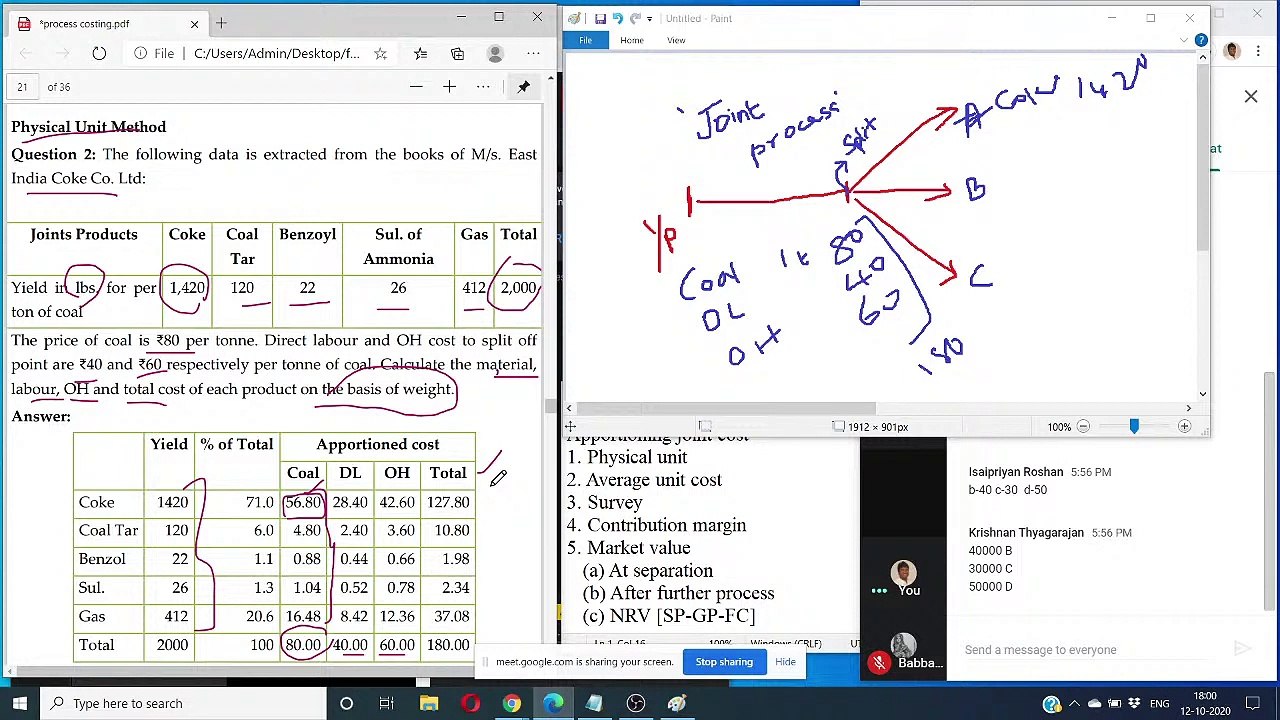 *process costing.pdf
File
C:/Users/Admin/Desktop/f...
21 of 36
Physical Unit Method
Question 2: The following data is extracted from the books of M/s. East
India Coke Co. Ltd:
Joints Products Coke Coal Tar Benzoyl Sul. of Ammonia Gas Total
Yield in lbs. for per ton of coal 1,420 120 22 26 412 2,000
The price of coal is ₹80 per tonne. Direct labour and OH cost to split off
point are ₹40 and ₹60 respectively per tonne of coal. Calculate the material,
labour, OH and total cost of each product on the basis of weight.
Answer:
Yield % of Total Apportioned cost
Coal DL OH Total
Coke 1420 71.0 56.80 28.40 42.60 127.80
Coal Tar 120 6.0 4.80 2.40 3.60 10.80
Benzol 22 1.1 0.88 0.44 0.66 1.98
Sul. 26 1.3 1.04 0.52 0.78 2.34
Gas 412 20.6 16.48 8.42 12.36 37.08
Total 2000 100 80.00 40.00 60.00 180.00
Untitled - Paint
File Home View
Joint
process
split
A
B
C
I/P
Coal 80
DL 40
OH 60
180
1912 × 901px
100%
Apportioning joint cost
1. Physical unit
2. Average unit cost
3. Survey
4. Contribution margin
5. Market value
(a) At separation
(b) After further process
(c) NRV [SP-GP-FC]
100%
Windows (CRLF)
meet.google.com is sharing your screen.
Stop sharing
Hide
Isaipriyan Roshan 5:56 PM
b-40 c-30 d-50
Krishnan Thyagarajan 5:56 PM
40000 B
30000 C
50000 D
You
Babba...
Send a message to everyone
Type here to search
ENG
18:00
12-10-2020